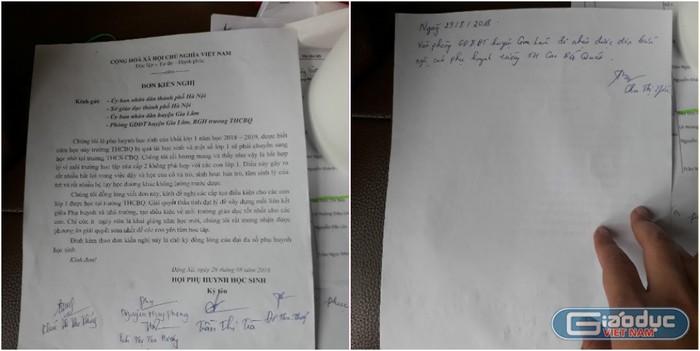 CỘNG HÒA XÃ HỘI CHỦ NGHĨA VIỆT NAM
Độc lập – Tự do – Hạnh phúc
ĐƠN KIẾN NGHỊ
Kính gửi: - Ủy ban nhân dân thành phố Hà Nội
- Sở giáo dục thành phố Hà Nội
- Ủy ban nhân dân huyện Gia Lâm
- Phòng GDĐT huyện Gia Lâm, BGH trường THCBQ
Chúng tôi là phụ huynh học sinh của khối lớp 1 năm học 2018 – 2019, được biết
năm học này trường THCBQ bị quá tải học sinh và một số lớp 1 sẽ phải chuyển sang
học nhờ tại trường THCS CBQ. Chúng tôi rất hoang mang và thấy như vậy là bất hợp
lý vì môi trường học tập của cấp 2 không phù hợp với các con lớp 1. Điều này gây ra
rất nhiều bất lợi trong việc dạy và học của cô và trò, sinh hoạt bán trú, tâm sinh lý của
trẻ và rất nhiều hệ lụy học đường khác không lường trước được.
Chúng tôi đồng lòng viết đơn này, kính đề nghị các cấp tạo điều kiện cho các con
lớp 1 được học tại trường THCBQ. Giải quyết thấu tình đạt lý để xây dựng mối liên kết
giữa Phụ huynh và nhà trường, tạo điều kiện về môi trường giáo dục tốt nhất cho các
con. Chỉ còn ít ngày nữa là khai giảng năm học mới, chúng tôi rất mong nhận được
phương án giải quyết sớm nhất để các con yên tâm học tập.
Đính kèm theo đơn kiến nghị này là chữ ký đồng lòng của đại đa số phụ huynh
học sinh.
Kính đơn!
Đặng Xá, ngày 28 tháng 08 năm 2018
HỘI PHỤ HUYNH HỌC SINH
Ký tên
Trần Thị Trà
Ngày 29/8/2018
Văn phòng GDĐT huyện Gia Lâm đã nhận được đơn kiến
nghị của phụ huynh trường TH Cao Bá Quát.
Chu Thị
Giáo dục
VIỆT NAM